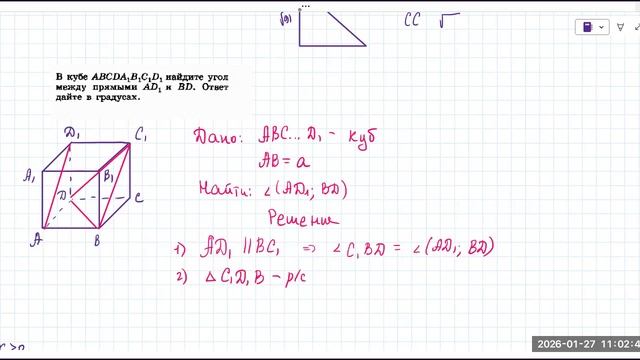 CC √
В кубе ABCDA₁B₁C₁D₁ найдите угол
между прямыми AD₁ и BD. Ответ
дайте в градусах.
D₁ C₁
A₁ B₁
D C
A B
Дано: ABC...D₁ - куб
AB = a
Найти: ∠(AD₁; BD)
Решение
1) AD₁ || BC₁ ⇒ ∠C₁BD = ∠(AD₁; BD)
2) △ C₁D₁B - р/с
2026-01-27 11:02:4